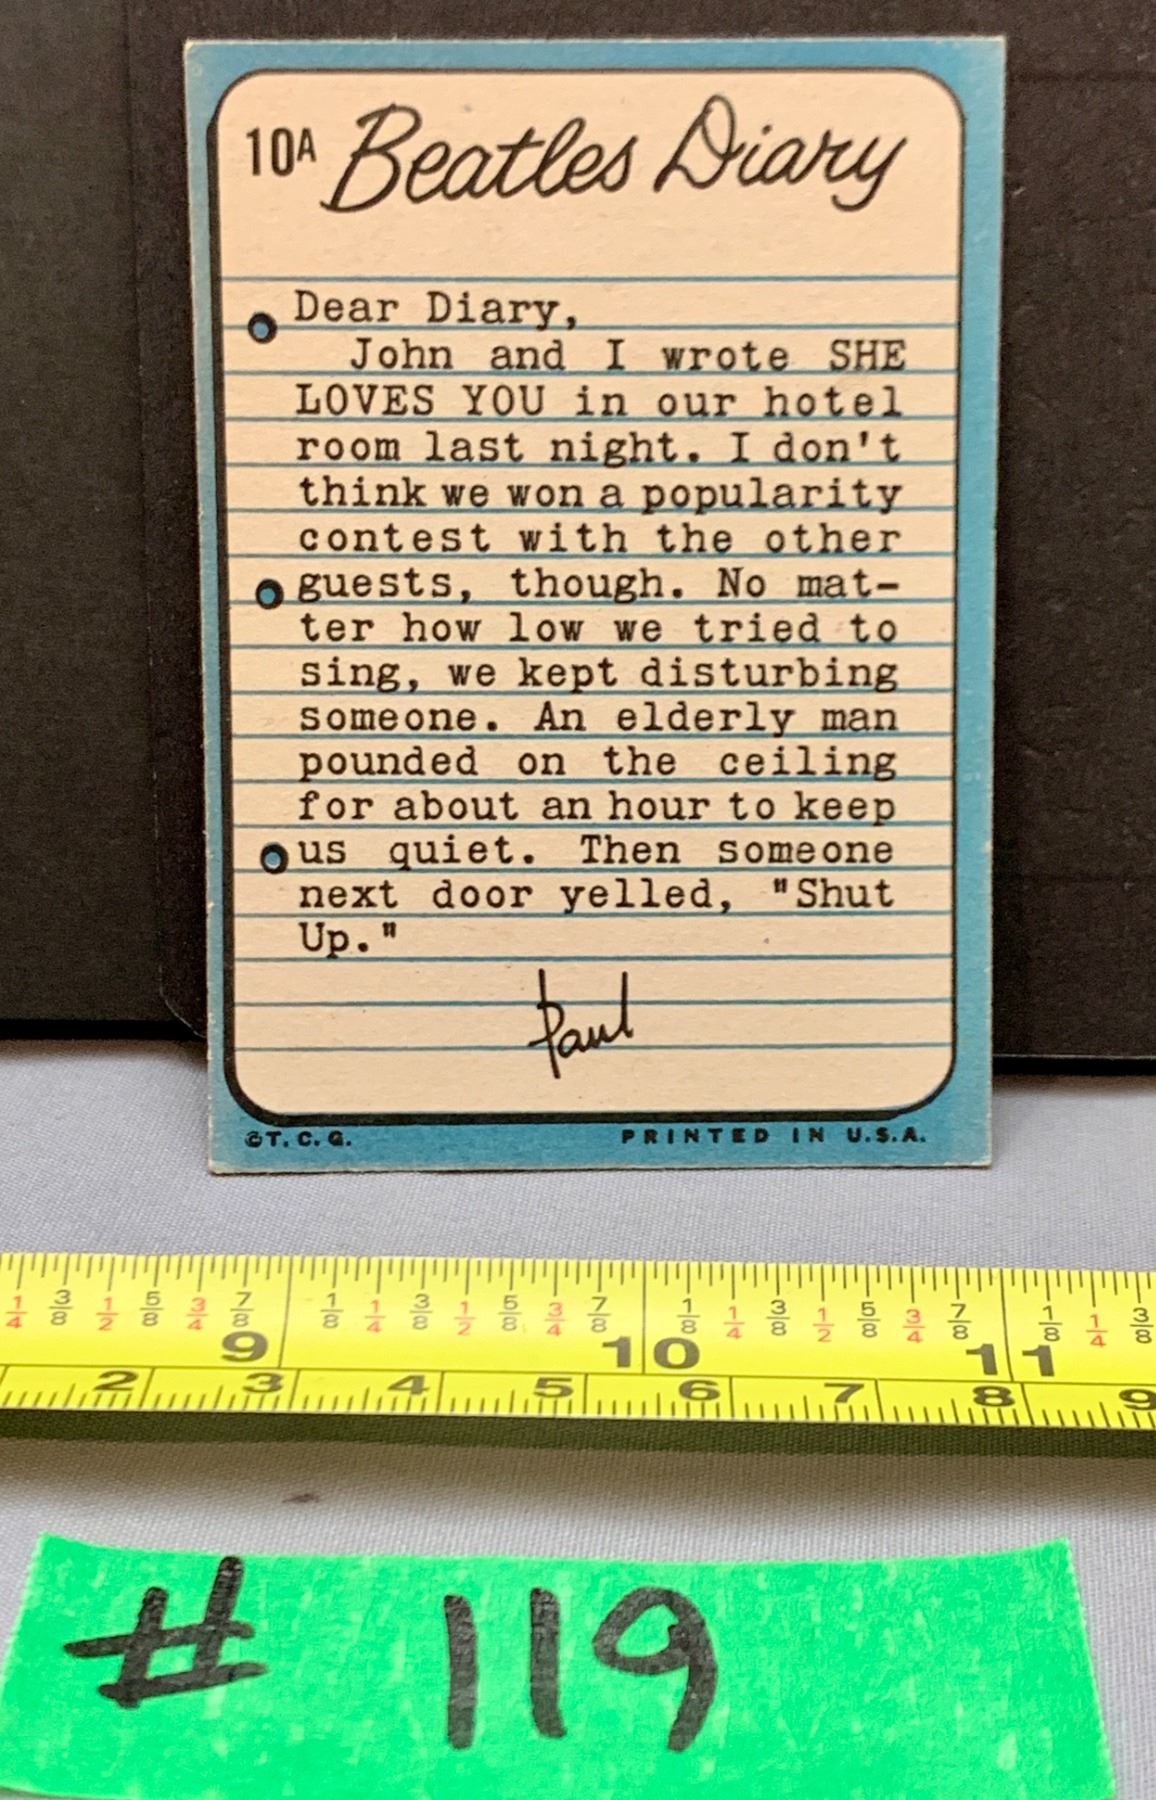 10A Beatles Diary
Dear Diary,
John and I wrote SHE
LOVES YOU in our hotel
room last night. I don't
think we won a popularity
contest with the other
guests, though. No mat-
ter how low we tried to
sing, we kept disturbing
someone. An elderly man
pounded on the ceiling
for about an hour to keep
us quiet. Then someone
next door yelled, "Shut
Up."
Paul
©T.C.G. PRINTED IN U.S.A.
1/4 3/8 1/2 5/8 3/4 7/8 1/8 1/4 3/8 1/2 5/8 3/4 7/8 1/8 1/4 3/8 1/2 5/8 3/4 7/8 1/8 1/4 3/8
9 10 11
2 3 4 5 6 7 8 9
# 119